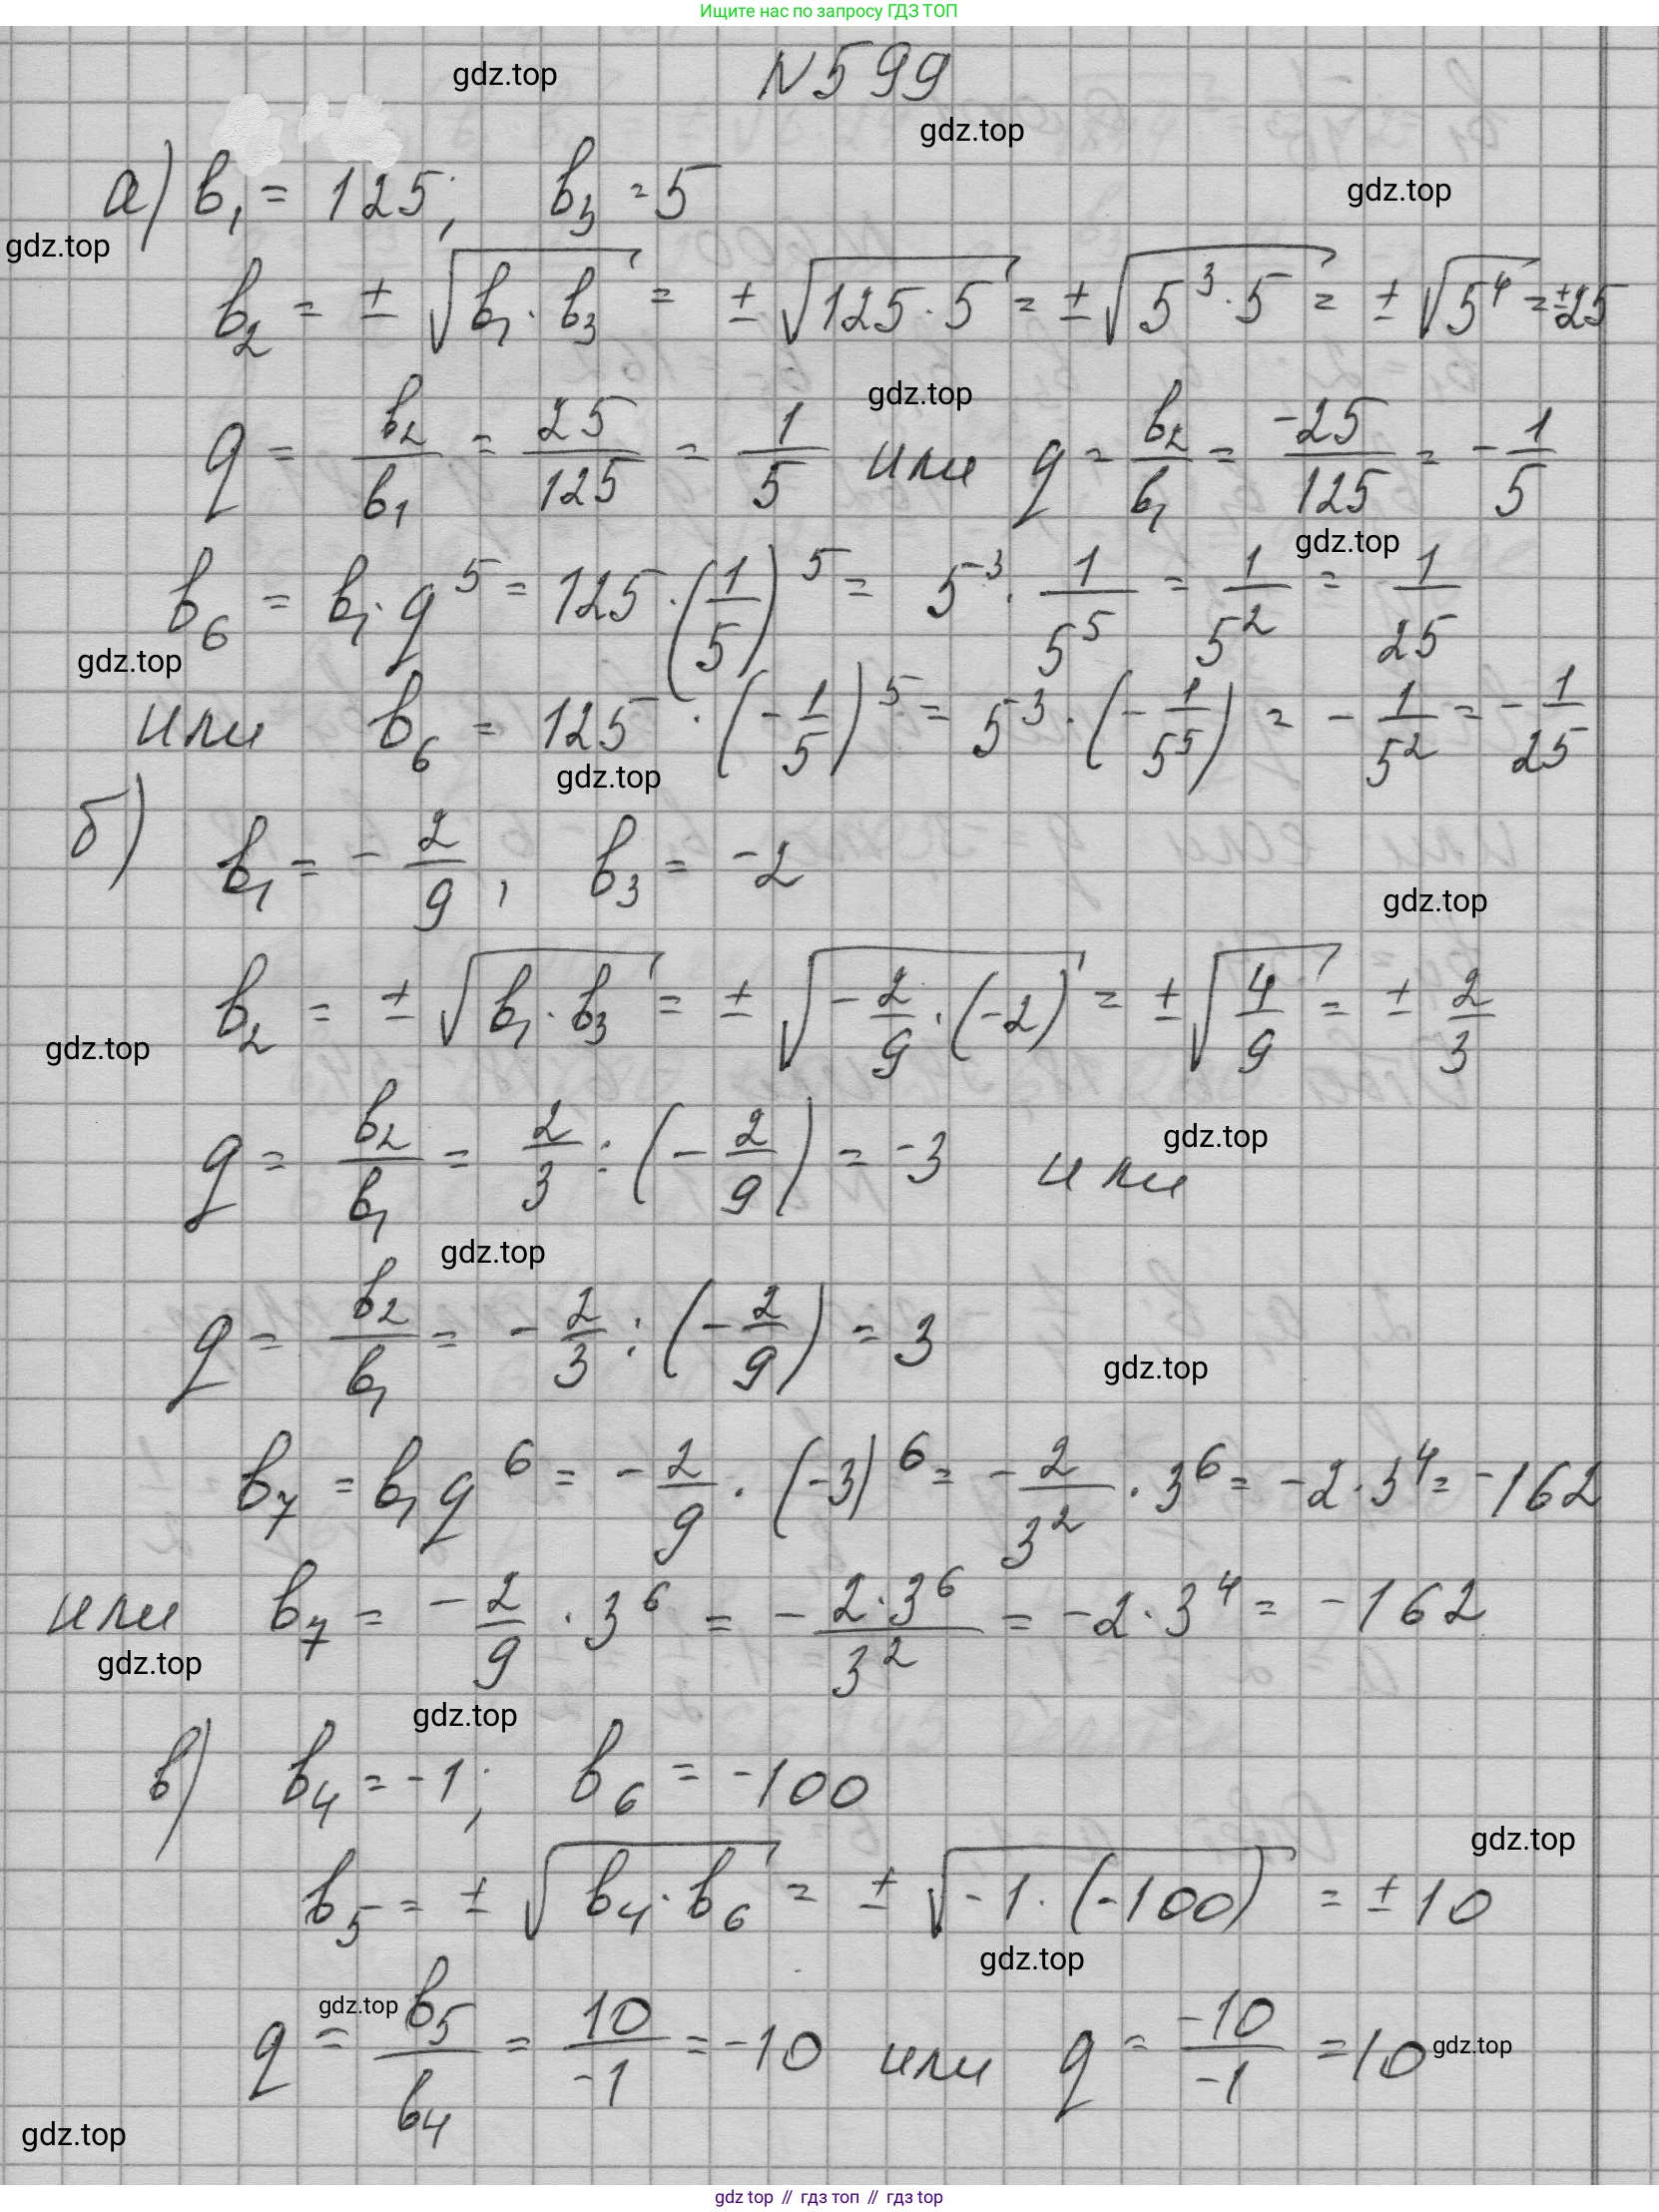 Ищите нас по запросу ГДЗ ТОП
gdz.top
N 599
gdz.top
а) b₁ = 125; b₃ = 5
gdz.top
gdz.top
b₂ = ± √(b₁ · b₃) = ± √(125 · 5) = ± √(5³ · 5) = ± √(5⁴) = ±25
gdz.top
q = b₂/b₁ = 25/125 = 1/5 или q = b₂/b₁ = -25/125 = -1/5
gdz.top
b₆ = b₁ · q⁵ = 125 · (1/5)⁵ = 5³ · 1/5⁵ = 1/5² = 1/25
gdz.top
или b₆ = 125 · (-1/5)⁵ = 5³ · (-1/5⁵) = -1/5² = -1/25
gdz.top
б) b₁ = -2/9, b₃ = -2
gdz.top
b₂ = ± √(b₁ · b₃) = ± √(-2/9 · (-2)) = ± √(4/9) = ± 2/3
gdz.top
q = b₂/b₁ = 2/3 : (-2/9) = -3 или
gdz.top
gdz.top
q = b₂/b₁ = -2/3 : (-2/9) = 3
gdz.top
b₇ = b₁ q⁶ = -2/9 · (-3)⁶ = -2/3² · 3⁶ = -2 · 3⁴ = -162
или b₇ = -2/9 · 3⁶ = -(2 · 3⁶)/3² = -2 · 3⁴ = -162
gdz.top
gdz.top
в) b₄ = -1; b₆ = -100
gdz.top
b₅ = ± √(b₄ · b₆) = ± √(-1 · (-100)) = ± 10
gdz.top
gdz.top
q = b₅/b₄ = 10/-1 = -10 или q = -10/-1 = 10
gdz.top
gdz.top
gdz top // гдз топ // гдз top